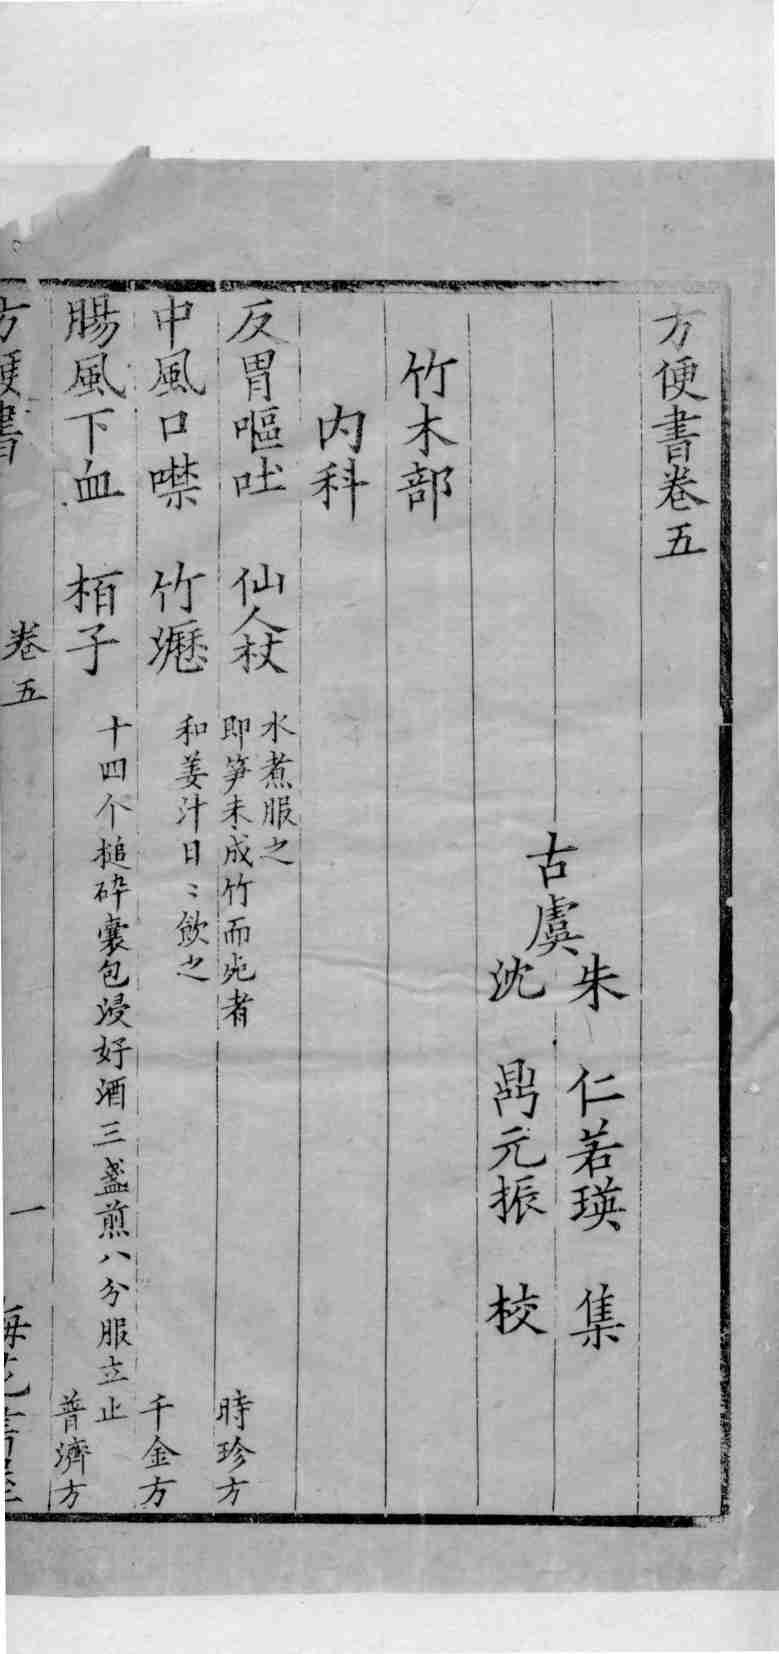 方便書卷五
古虞
朱仁若瑛集
沈鼎元振校
竹木部
內科
反胃嘔吐 仙人杖 水煮服之
即笋未成竹而死者 時珍方
中風口噤 竹瀝 和姜汁日〻飲之 千金方
腸風下血 柏子 十四个搥碎囊包浸好酒三盞煎八分服立止 普濟方
方便書 卷五 一